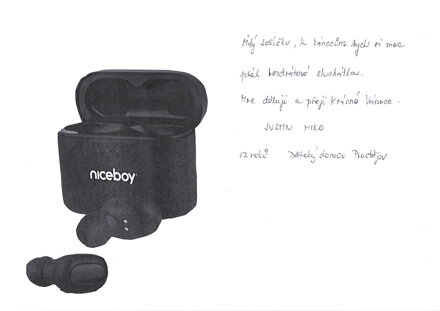 Milý Ježíšku, k Vánocům bych si moc
přál bezdrátová sluchátka.
Moc děkuji a přeji krásné Vánoce.
JUSTIN
12 roků Dětský domov Prostějov
niceboy